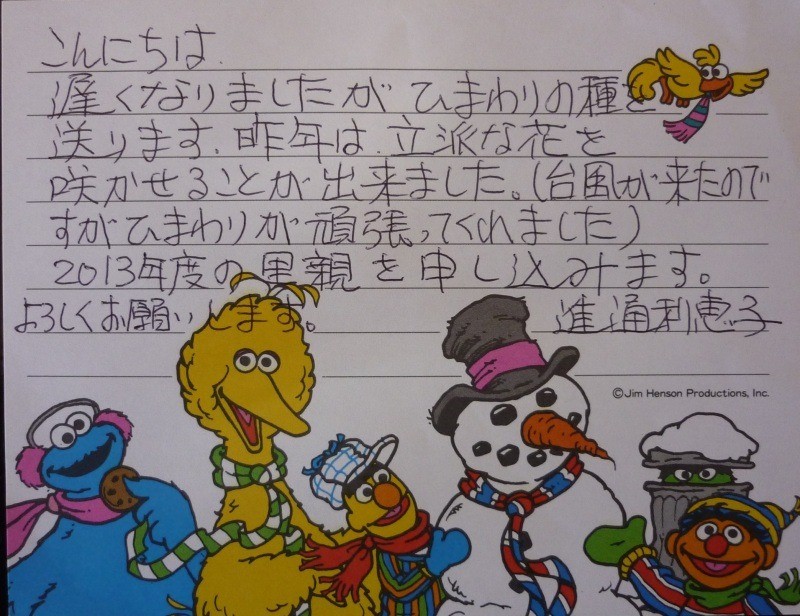 こんにちは.
遅くなりましたが ひまわりの種を
送ります. 昨年は. 立派な花を
咲かせることが出来ました。(台風が来たので
すがひまわりが頑張ってくれました)
2013年度の里親を申し込みます。
よろしくお願いします。 進通利恵子
©Jim Henson Productions, Inc.